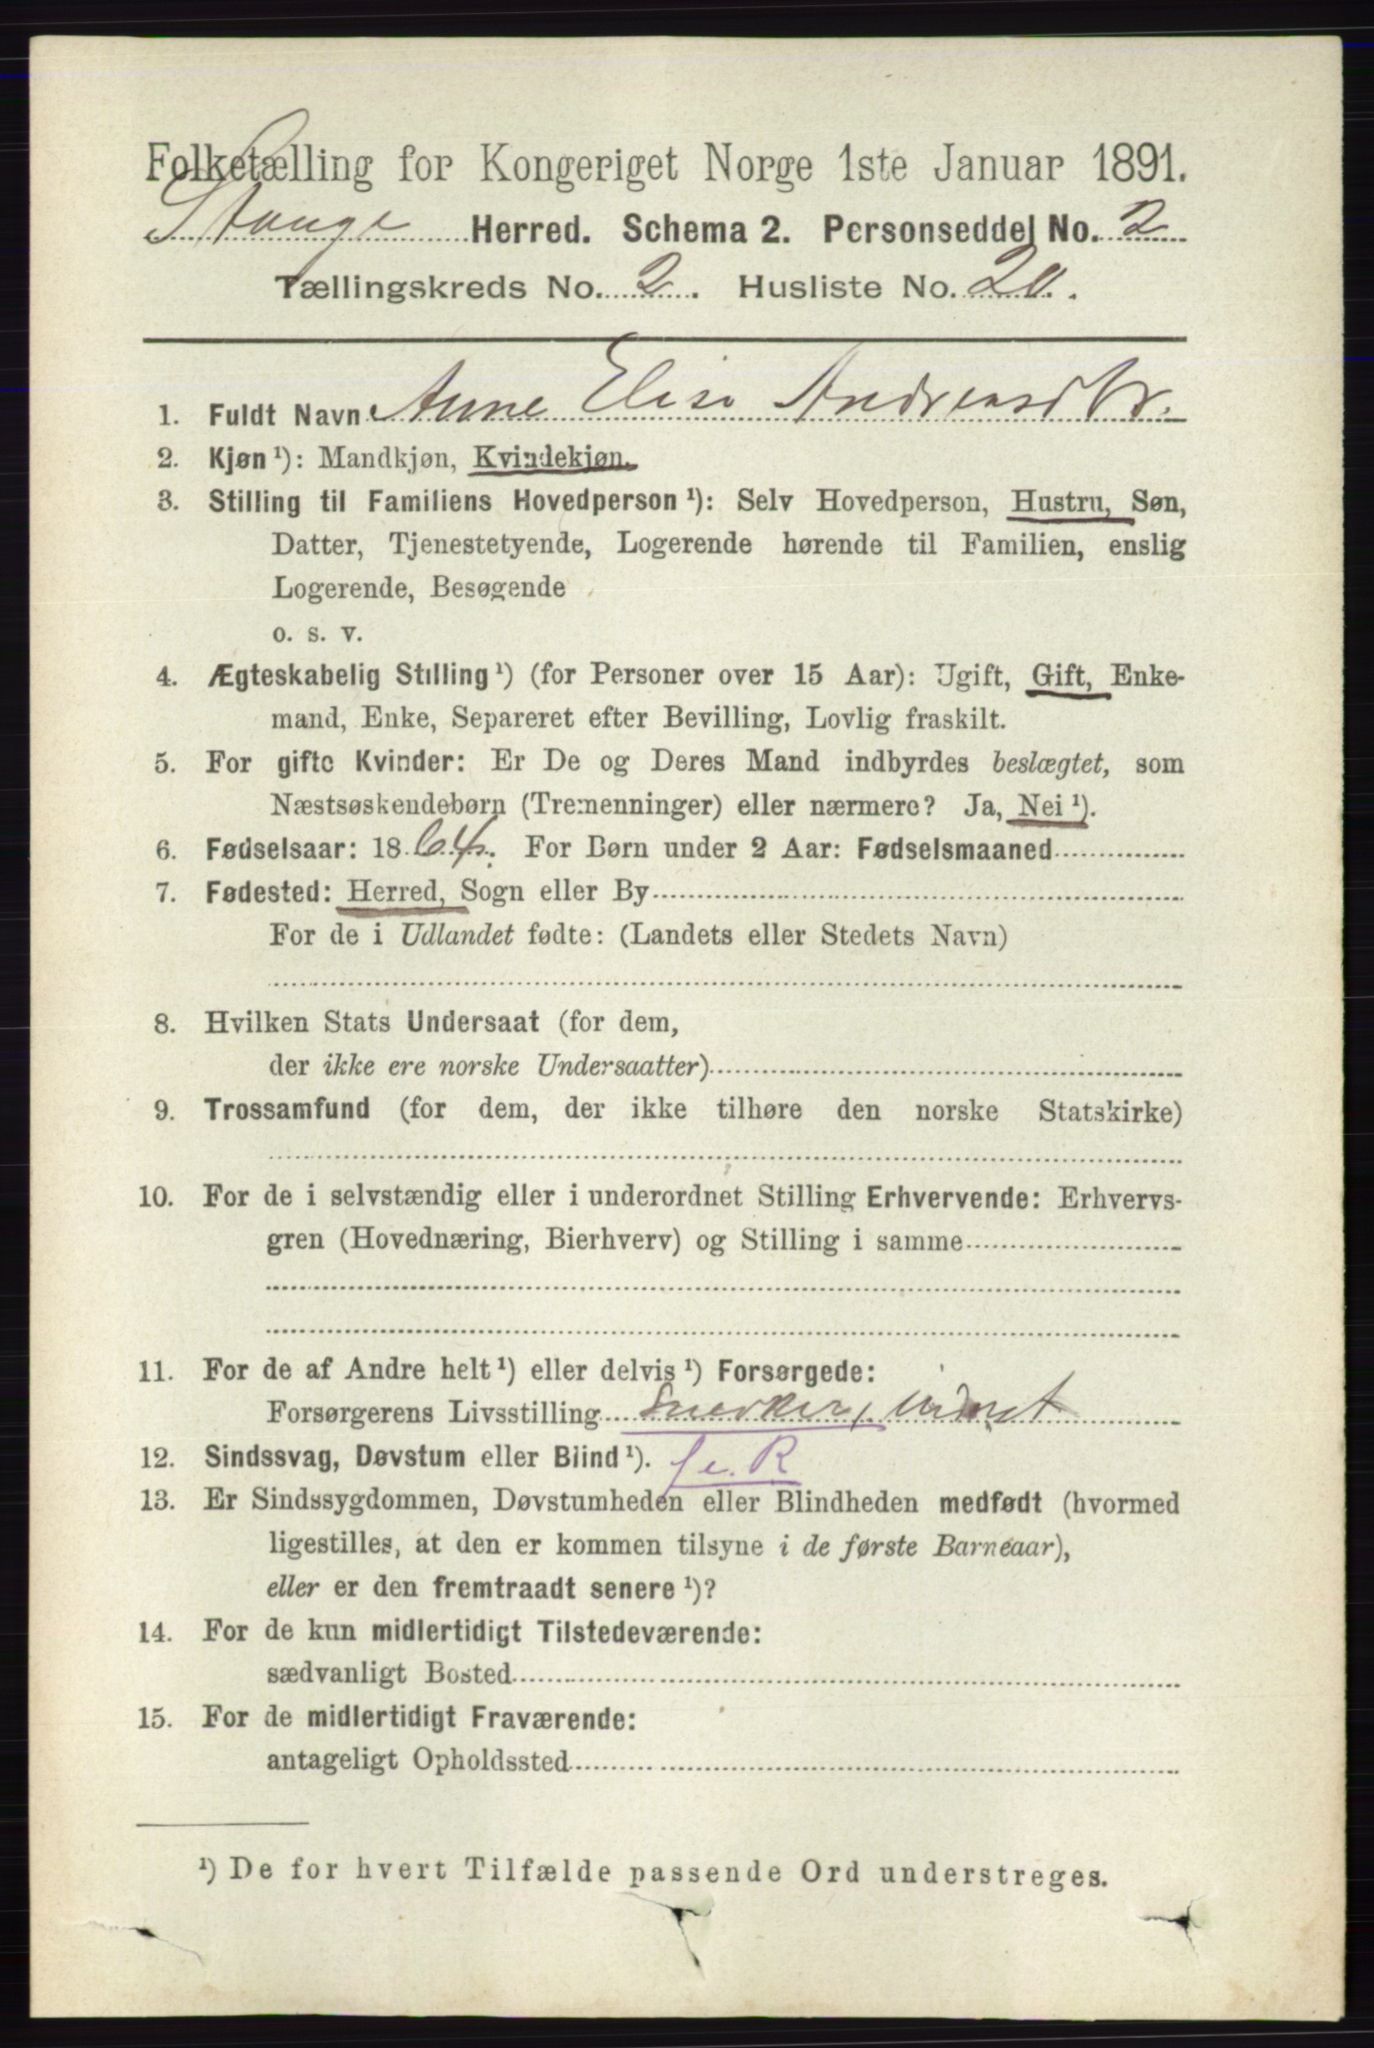 Folketælling for Kongeriget Norge 1ste Januar 1891.
Stange Herred. Schema 2. Personseddel No. 2
Tællingskreds No. 2. Husliste No. 20.
1. Fuldt Navn Anne Elise Andreasdtr.
2. Kjøn ¹): Mandkjøn, Kvindekjøn.
3. Stilling til Familiens Hovedperson ¹): Selv Hovedperson, Hustru, Søn,
Datter, Tjenestetyende, Logerende hørende til Familien, enslig
Logerende, Besøgende
o. s. v.
4. Ægteskabelig Stilling ¹) (for Personer over 15 Aar): Ugift, Gift, Enke-
mand, Enke, Separeret efter Bevilling, Lovlig fraskilt.
5. For gifte Kvinder: Er De og Deres Mand indbyrdes beslægtet, som
Næstsøskendebørn (Tremenninger) eller nærmere? Ja, Nei ¹).
6. Fødselsaar: 1864. For Børn under 2 Aar: Fødselsmaaned
7. Fødested: Herred, Sogn eller By
For de i Udlandet fødte: (Landets eller Stedets Navn)
8. Hvilken Stats Undersaat (for dem,
der ikke ere norske Undersaatter)
9. Trossamfund (for dem, der ikke tilhøre den norske Statskirke)
10. For de i selvstændig eller i underordnet Stilling Erhvervende: Erhvervs-
gren (Hovednæring, Bierhverv) og Stilling i samme
11. For de af Andre helt ¹) eller delvis ¹) Forsørgede:
Forsørgerens Livsstilling Snedker,
12. Sindssvag, Døvstum eller Blind ¹).
13. Er Sindssygdommen, Døvstumheden eller Blindheden medfødt (hvormed
ligestilles, at den er kommen tilsyne i de første Barneaar),
eller er den fremtraadt senere ¹)?
14. For de kun midlertidigt Tilstedeværende:
sædvanligt Bosted
15. For de midlertidigt Fraværende:
antageligt Opholdssted
¹) De for hvert Tilfælde passende Ord understreges.